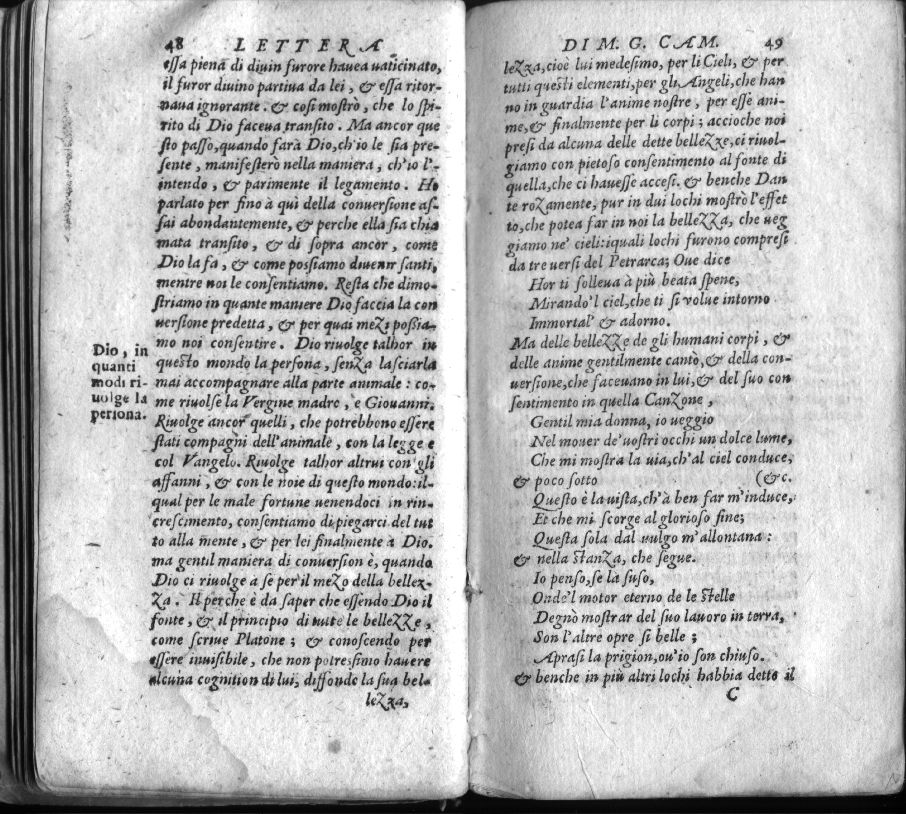 48 LETTERA
essa piena di diuin furore hauea uaticinato,
il furor diuino partiua da lei, & essa ritor-
naua ignorante. & cosi mostrò, che lo spi-
rito di Dio faceua transito. Ma ancor que
sto passo, quando farà Dio, ch'io le sia pre-
sente, manifesterò nella maniera, ch'io l'-
intendo, & parimente il legamento. Ho
parlato per fino à qui della conuersione as-
sai abondantemente, & perche ella sia chia
mata transito, & di sopra ancor, come
Dio la fa, & come possiamo diuenir santi,
mentre noi le consentiamo. Resta che dimo-
striamo in quante maniere Dio faccia la con
uersione predetta, & per quai mezi possia-
mo noi consentire. Dio riuolge talhor in
questo mondo la persona, senza lasciarla
mai accompagnare alla parte animale: co-
me riuolse la Vergine madre, e Giouanni.
Riuolge ancor quelli, che potrebbono essere
stati compagni dell'animale, con la legge e
col Vangelo. Riuolge talhor altrui con gli
affanni, & con le noie di questo mondo: il-
qual per le male fortune uenendoci in rin-
crescimento, consentiamo di piegarci del tut
to alla mente, & per lei finalmente à Dio.
ma gentil maniera di conuersion è, quando
Dio ci riuolge à se per il mezo della bellez-
za. Il perche è da saper che essendo Dio il
fonte, & il principio di tutte le bellezze,
come scriue Platone; & conoscendo per
essere inuisibile, che non potressimo hauere
alcuna cognition di lui, diffonde la sua bel-
lezza,
Dio, in
quanti
modi ri-
uolge la
persona.
DI M. G. CAM. 49
lezza, cioè lui medesimo, per li Cieli, & per
tutti questi elementi, per gli Angeli, che han
no in guardia l'anime nostre, per esse ani-
me, & finalmente per li corpi; accioche noi
presi da alcuna delle dette bellezze, ci riuol-
giamo con pietoso consentimento al fonte di
quella, che ci hauesse accesi. & benche Dan
te rozamente, pur in dui lochi mostrò l'effet
to, che potea far in noi la bellezza, che ueg
giamo ne' cieli: iquali lochi furono compresi
da tre uersi del Petrarca; Oue dice
Hor ti solleua à più beata spene,
Mirando'l ciel, che ti si uolue intorno
Immortal' & adorno.
Ma delle bellezze de gli humani corpi, &
delle anime gentilmente cantò, & della con-
uersione, che faceuano in lui, & del suo con
sentimento in quella Canzone,
Gentil mia donna, io ueggio
Nel mouer de'uostri occhi un dolce lume,
Che mi mostra la uia, ch'al ciel conduce,
& poco sotto (&c.
Questo è la uista, ch'à ben far m'induce,
Et che mi scorge al glorioso fine;
Questa sola dal uulgo m'allontana:
& nella stanza, che segue.
Io penso, se la suso,
Onde'l motor eterno de le stelle
Degnò mostrar del suo lauoro in terra,
Son l'altre opre si belle;
Aprasi la prigion, ou'io son chiuso.
& benche in più altri lochi habbia detto il
C